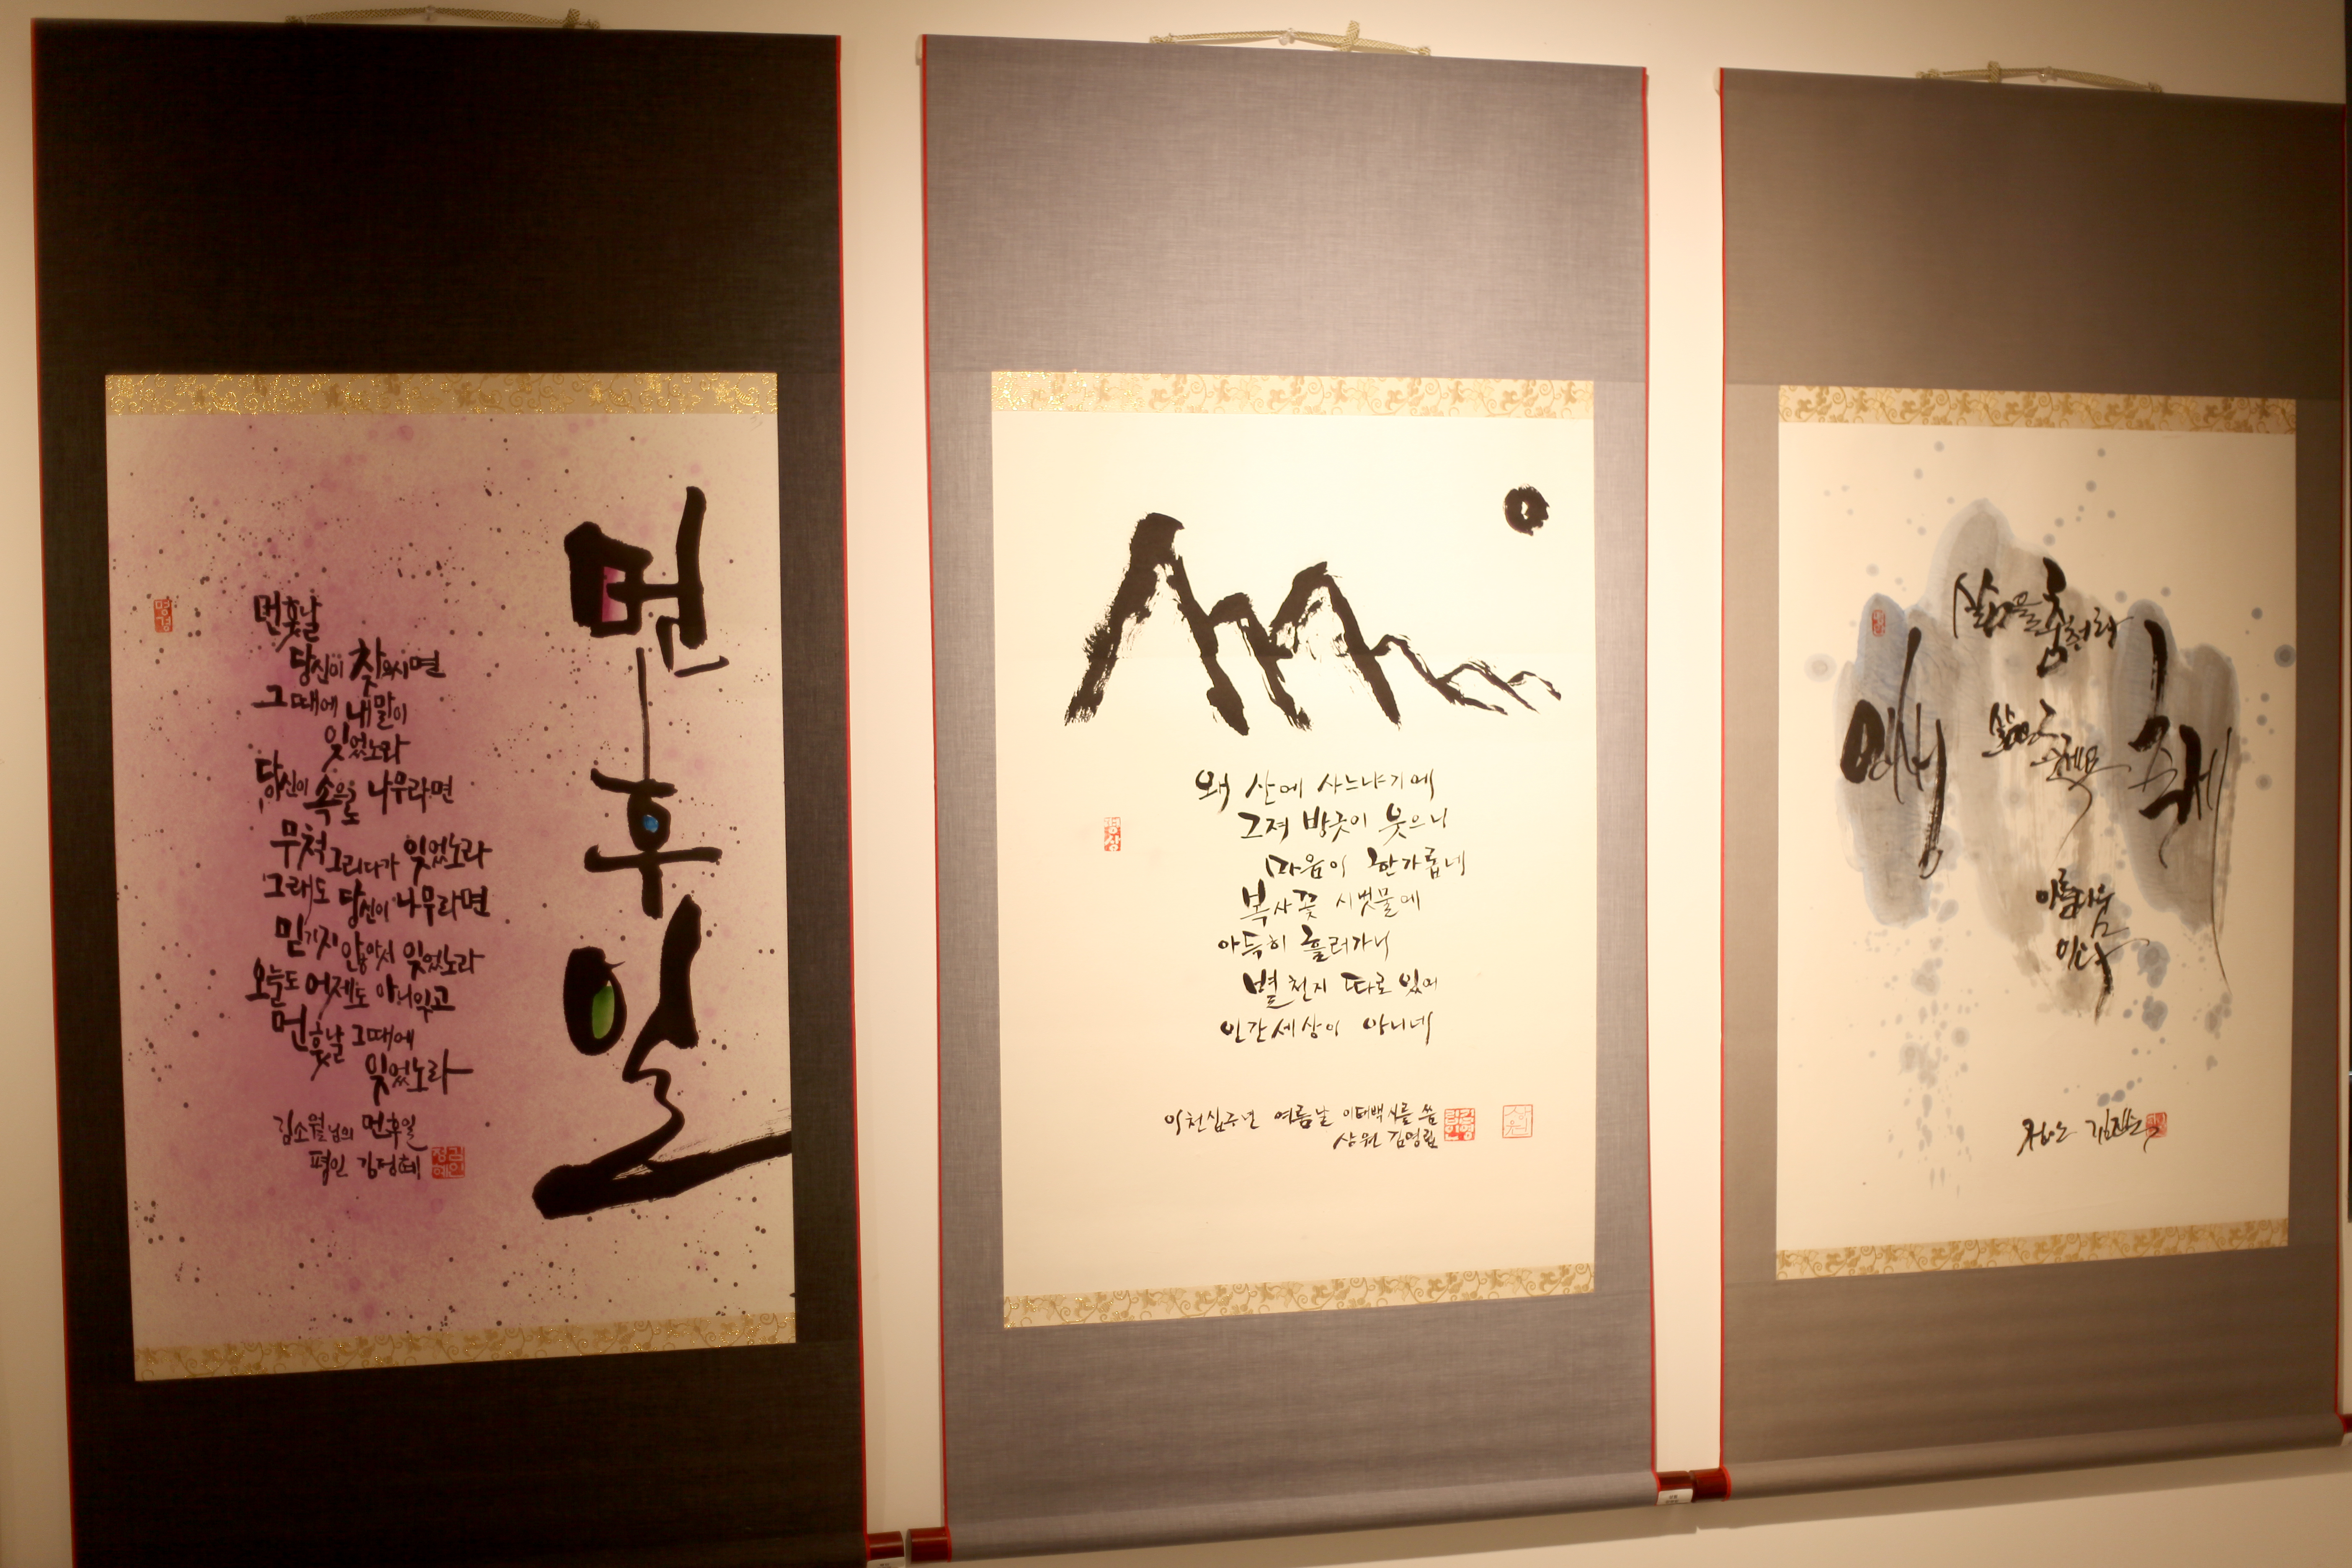 먼후일
먼훗날
당신이 찾으시면
그때에 내말이
잊었노라
당신이 속으로 나무라면
무척 그리다가 잊었노라
그래도 당신이 나무라면
믿기지 않아서 잊었노라
오늘도 어제도 아니잊고
먼훗날 그때에
잊었노라
김소월님의 먼후일
평인 김정혜
왜 산에 사느냐기에
그저 방긋이 웃으니
마음이 한가롭네
복사꽃 시냇물에
아득히 흘러가니
별천지 따로 있어
인간세상이 아니네
이천십구년 여름날 이태백 시를 씀
상원 김영림
명상
삶은
축제
아름다움
이다